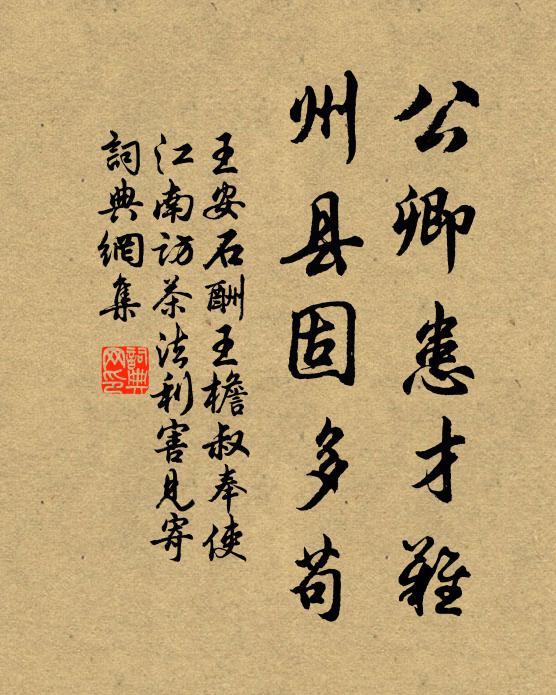 公卿患才難
州县固多苟
王安石酬王檐叔奉使
江南访茶法利害見寄
詞典網集
詞典网印